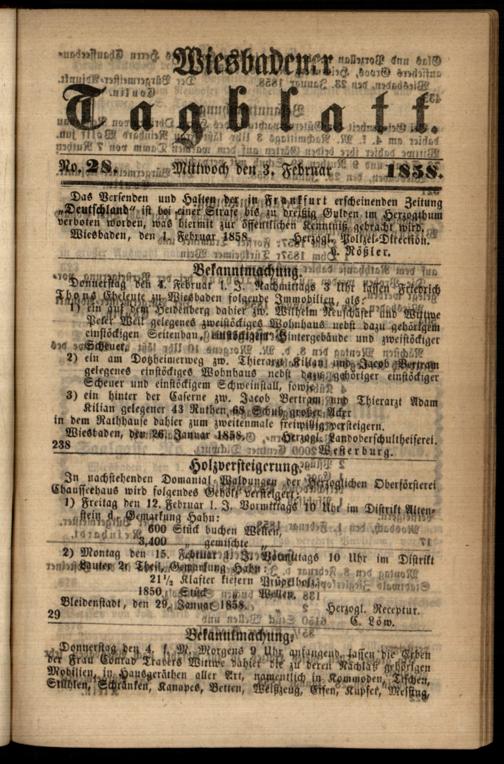 Wiesbadener
Tagblatt.
No. 28. Mittwoch den 3. Februar 1858.
Das Versenden und Halten der in Frankfurt erscheinenden Zeitung
„Deutschland“ ist bei einer Strafe bis zu dreißig Gulden im Herzogthum
verboten worden, was hiermit zur öffentlichen Kenntniß gebracht wird.
Wiesbaden, den 1. Februar 1858. Herzogl. Polizei-Direction.
Rößler.
Bekanntmachung.
Donnerstag den 4. Februar l. J. Nachmittags 3 Uhr lassen Friedrich
Thons Eheleute zu Wiesbaden folgende Immobilien, als:
1) ein auf dem Heidenberg dahier zw. Wilhelm und Wittwe
Peter Weil gelegenes zweistöckiges Wohnhaus nebst dazu gehörigem
einstöckigen Seitenbau, einstöckigem Hintergebäude und zweistöckiger
Scheuer,
2) ein am Dotzheimerweg zw. Thierarzt Kilian und Jacob Bertram
gelegenes einstöckiges Wohnhaus nebst dazu gehöriger einstöckiger
Scheuer und einstöckigem Schweinstall, sowie
3) ein hinter der Caserne zw. Jacob Bertram und Thierarzt Adam
Kilian gelegener 43 Ruthen, 68 Schuh großer Acker
in dem Rathhause dahier zum zweitenmale freiwillig versteigern.
Wiesbaden, den 26. Januar 1858. Herzogl. Landoberschultheiserei.
238 Westerburg.
Holzversteigerung.
In nachstehenden Domanial-Waldungen der Herzoglichen Oberförsterei
Chausseehaus wird folgendes Gehölz versteigert:
1) Freitag den 12. Februar l. J. Vormittags 10 Uhr im Distrikt Alten-
stein d. Gemarkung Hahn:
600 Stück buchen Wellen,
3,400 gemischte
2) Montag den 15. Februar l. J. Vormittags 10 Uhr im Distrikt
Lauter 2r Theil, Gemarkung Hahn:
21½ Klafter kiefern Prügelholz,
1850 Stück Wellen.
Bleidenstadt, den 29. Januar 1858. Herzogl. Receptur.
29 C. Löw.
Bekanntmachung.
Donnerstag den 4. l. M. Morgens 9 Uhr anfangend, lassen die Erben
der Frau Conrad Travers Wittwe dahier die zu deren Nachlaß gehörigen
Mobilien, in Hausgeräthen aller Art, namentlich in Kommoden, Tischen,
Stühlen, Schränken, Kanapes, Betten, Weißzeug, Eisen, Kupfer, Messing,